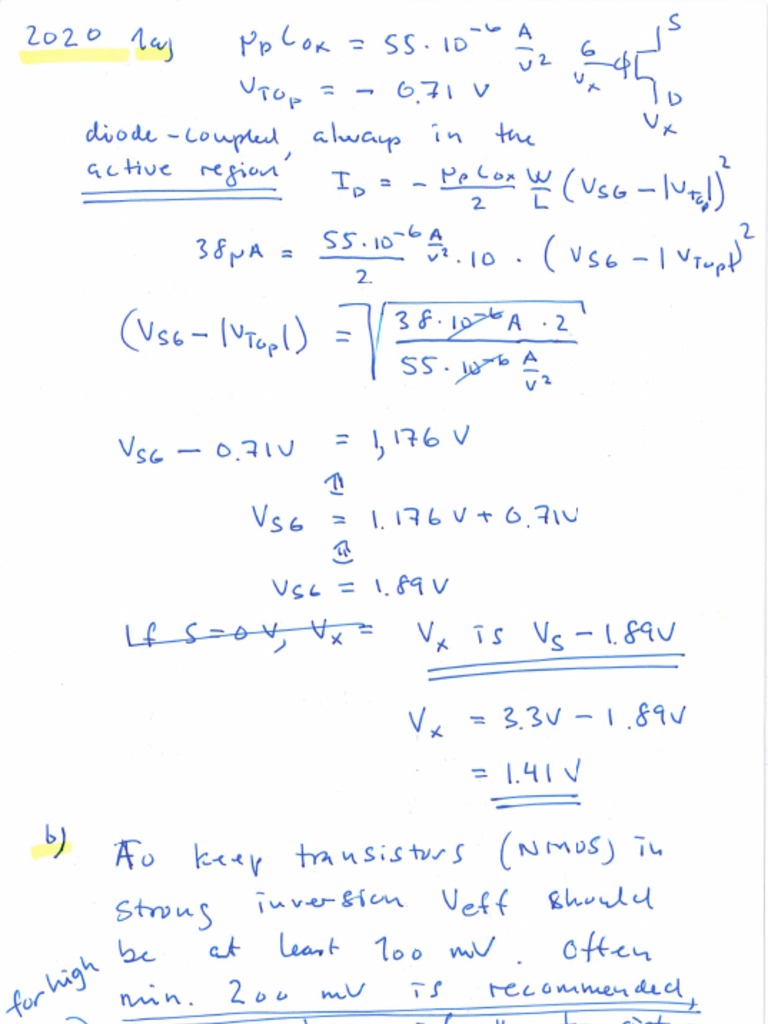 2020 1a)
μpCox = 55·10⁻⁶ A/V²
VTOp = - 0.71 V
S
G
Vx
D
Vx
diode-coupled, always in the
active region
ID = - μpCox/2 W/L (VSG - |VTop|)²
38μA = 55·10⁻⁶ A/V² / 2 · 10 · (VSG - |VTop|)²
(VSG - |VTop|) = √(38·10⁻⁶A · 2 / 55·10⁻⁶ A/V²)
VSG - 0.71V = 1,176 V
⇑
VSG = 1.176 V + 0.71V
⇕
VSG = 1.89V
If S=0V, Vx =
Vx is VS - 1.89V
Vx = 3.3V - 1.89V
= 1.41 V
b)
To keep transistors (NMOS) in
strong inversion Veff should
be at least 100 mV. Often
min. 200 mV is recommended,
for high